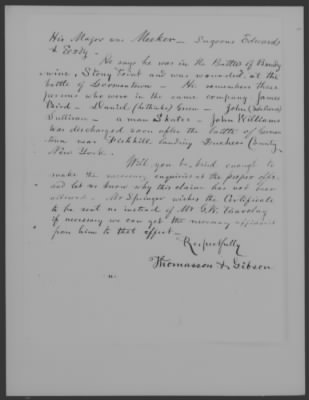 His Major was Meeker — Surgeons Edwards
& Eody.
He says he was in the Battles of Brandy-
wine, Stony Point and was wounded at the
battle of Germantown — He remembers these
persons who were in the same company James
Baird — Daniel Green — John
Sullivan — a man Slater — John Williams
was discharged soon after the battle of German
town near Fishkill landing Duchess County
New York.
Will you be kind enough to
make the necessary enquiries at the proper office
and let us know why this claim has not been
allowed. Mr Springer wishes the Certificate
to be sent us instead of Mr G. W.
if necessary we can get the necessary affidavit
from him to that effect —
Respectfully
Thomasson & Gibson